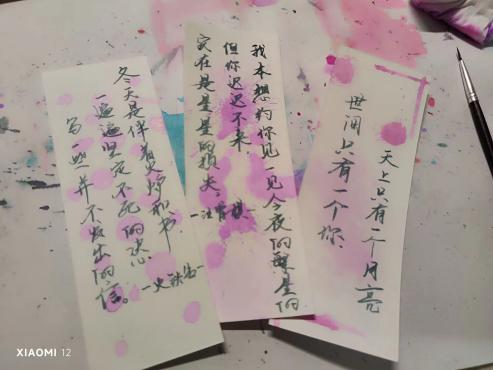 冬天是伴着火炉和书
一遍遍坚定不死的决心
写一些并不发出的信。
—史铁生—
我本想约你见一见今夜的星的
但你迟迟不来,
实在是星星的损失
—汪曾祺
天上只有一个月亮
世间只有一个你.
XIAOMI 12